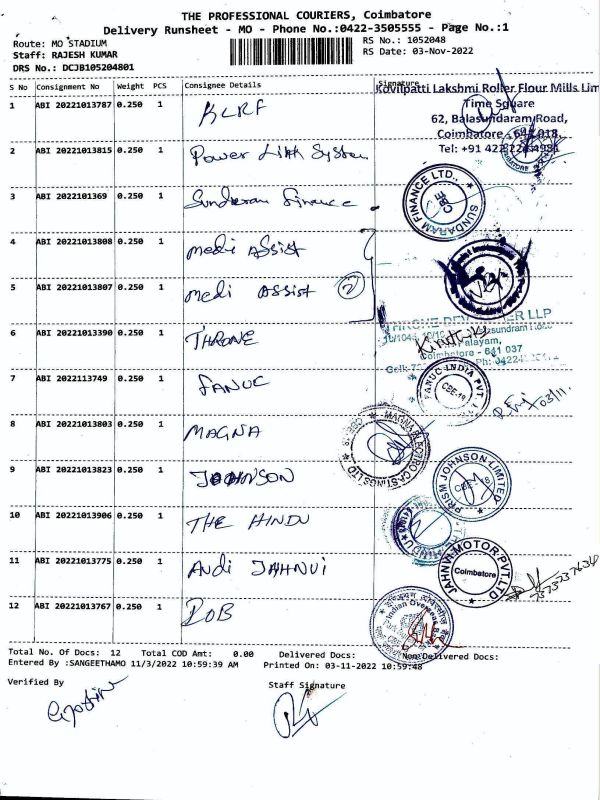 THE PROFESSIONAL COURIERS, Coimbatore
Delivery Runsheet - MO - Phone No.:0422-3505555 - Page No.:1
Route: MO STADIUM
RS No.: 1052048
Staff: RAJESH KUMAR
RS Date: 03-Nov-2022
DRS No.: DCJB105204801
S No Consignment No Weight PCS Consignee Details Signature
Kovilpatti Lakshmi Roller Flour Mills Lim
Time Square
62, Balasundaram Road,
Coimbatore - 641 018.
Tel: +91 422
1 ABI 20221013787 0.250 1 KLRF
2 ABI 2022013815 0.250 1 Power Link System
COIMBATORE
3 ABI 2022101369 0.250 1 Sundaram Finance
SUNDARAM FINANCE LTD., CBE
4 ABI 2022013808 0.250 1 Medi Assist
5 ABI 2022013807 0.250 1 Medi Assist 2
6 ABI 2022013390 0.250 1 THRONE
LLP
Coimbatore - 641 037
7 ABI 2022113749 0.250 1 FANUC
FANUC INDIA PVT CBE-18
03/11.
8 ABI 2022013803 0.250 1 MAGNA
MAGNA ELECTRO CASTINGS LTD CBE-18
9 ABI 2022013823 0.250 1 JOHNSON
PRISM JOHNSON LIMITED CBE-18
10 ABI 2022013906 0.250 1 THE HINDU
THE HINDU
11 ABI 2022013775 0.250 1 Audi JAHNVI
JAHNVI MOTOR PVT LTD Coimbatore
12 ABI 2022013767 0.250 1 IOB
Indian Overseas Bank
Total No. Of Docs: 12 Total COD Amt: 0.00 Delivered Docs: Non Delivered Docs:
Entered By :SANGEETHAMO 11/3/2022 10:59:39 AM Printed On: 03-11-2022 10:59:48
Verified By
Staff Signature